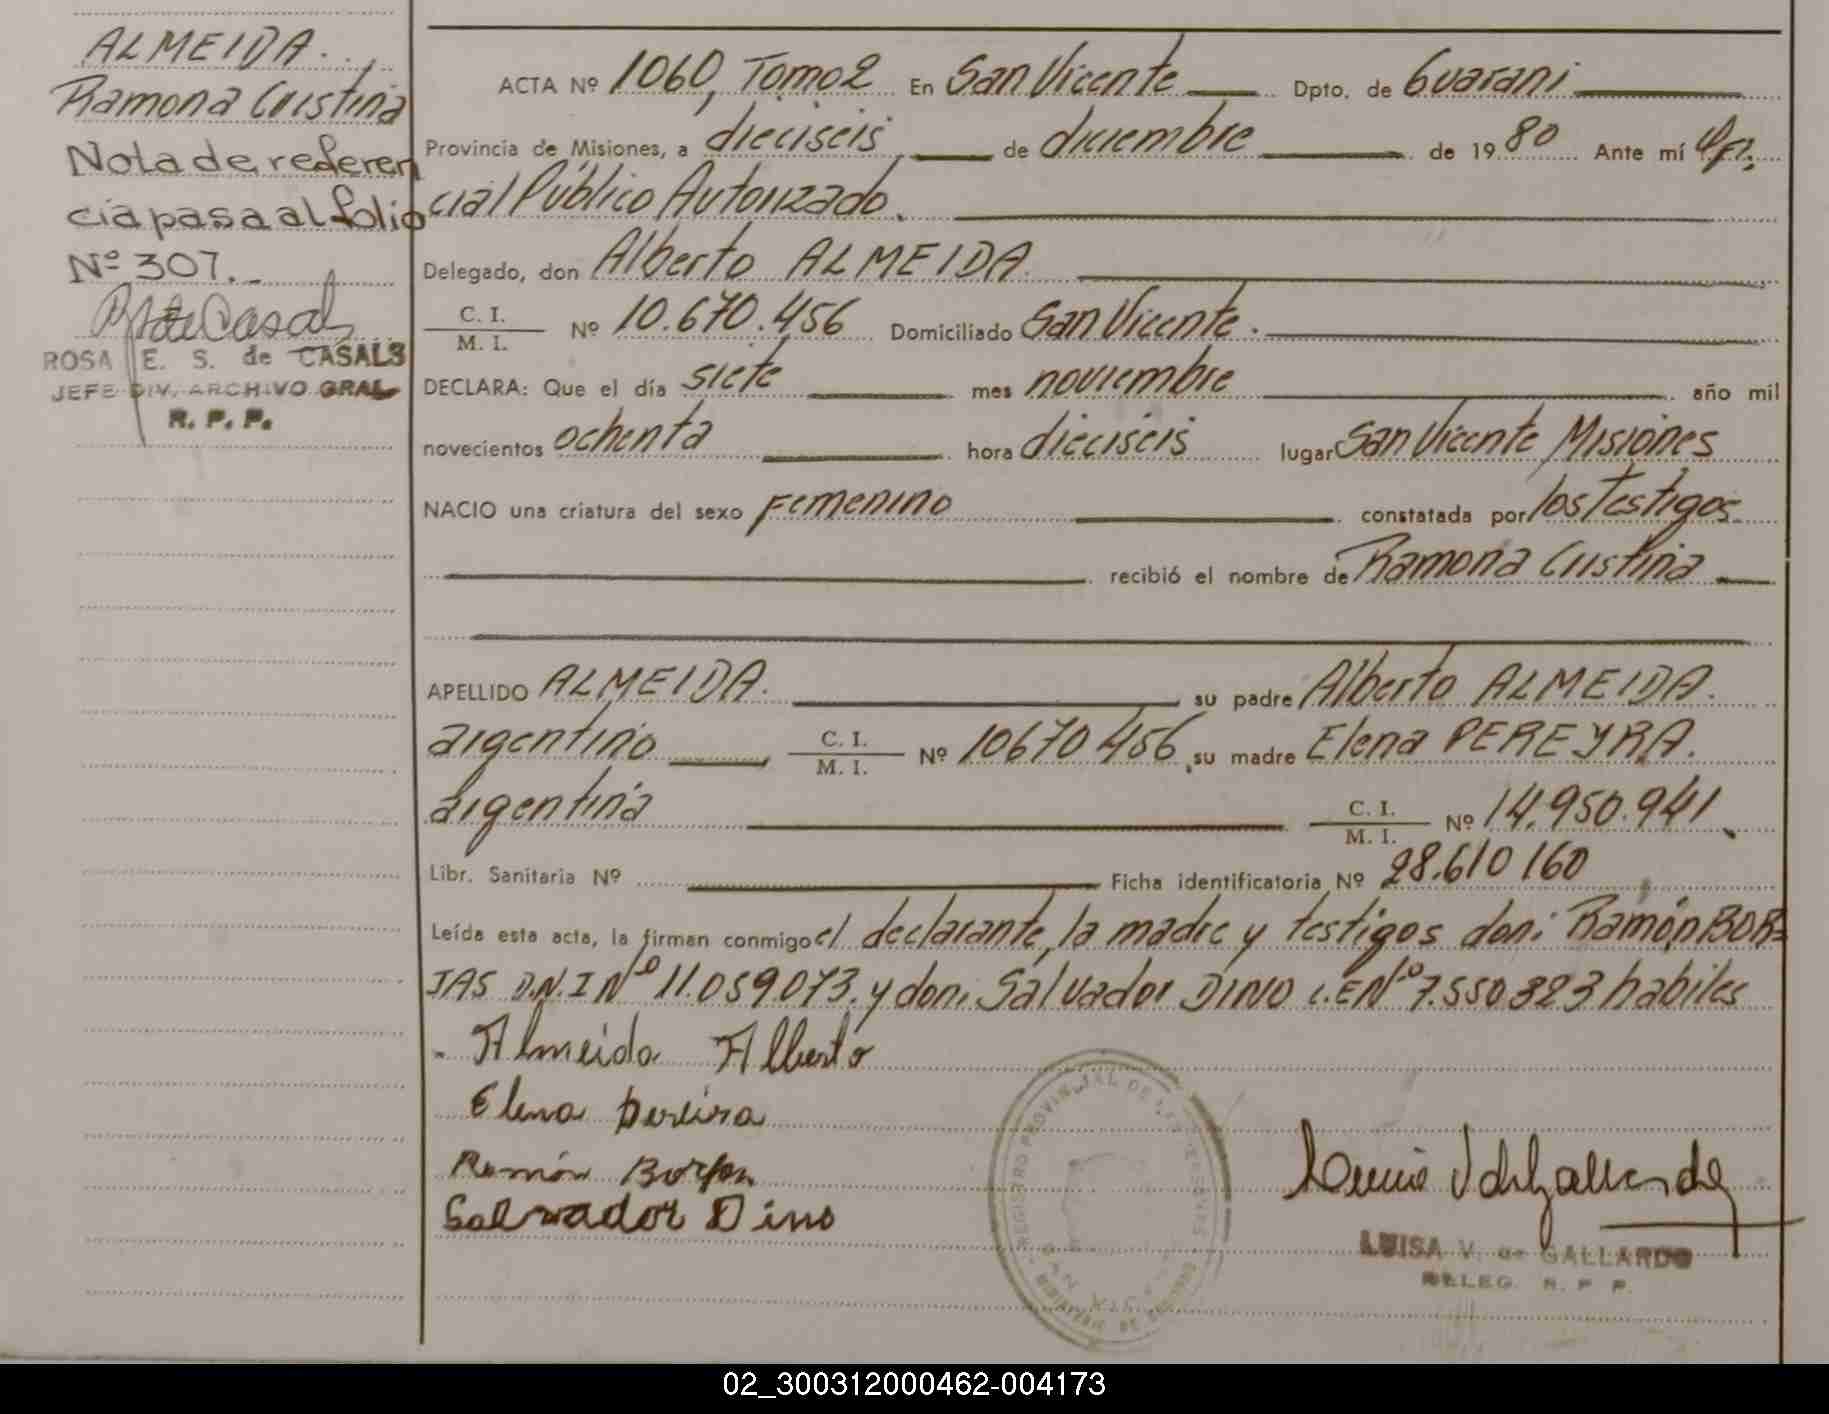 ALMEIDA.
Ramona Cristina
Nota de referen
cia pasa al folio
Nº 307.
ROSA E. S. de CASALS
JEFE DIV. ARCHIVO GRAL
R. P. P.
ACTA Nº 1060, Tomo 2 En San Vicente Dpto. de Guarani
Provincia de Misiones, a dieciseis de diciembre de 1980 Ante mí Ofi.
cial Público Autorizado.
Delegado, don Alberto ALMEIDA
C. I. / M. I. Nº 10.670.456 Domiciliado San Vicente.
DECLARA: Que el día siete mes noviembre año mil
novecientos ochenta hora dieciseis lugar San Vicente Misiones
NACIO una criatura del sexo Femenino constatada por los testigos
recibió el nombre de Ramona Cristina
APELLIDO ALMEIDA. su padre Alberto ALMEIDA.
argentino C. I. / M. I. Nº 10670456, su madre Elena PEREYRA.
argentina C. I. / M. I. Nº 14.950.941.
Libr. Sanitaria Nº Ficha identificatoria Nº 28.610160
Leída esta acta, la firman conmigo el declarante, la madre y testigos don: Ramón BOR=
JAS D.N.I Nº 11.059.073. y don: Salvador DINO L.E Nº 7.550.823 habiles
Almeida Alberto
Elena Pereira
Ramón Borjas
Salvador Dino
REGISTRO PROVINCIAL DE LAS PERSONAS
LUISA V. de GALLARDO
DELEG. R. P. P.
02_300312000462-004173